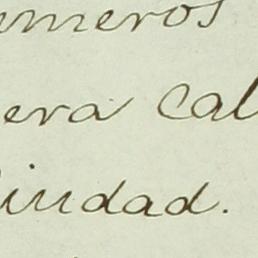 umeros
era Cal
iudad.